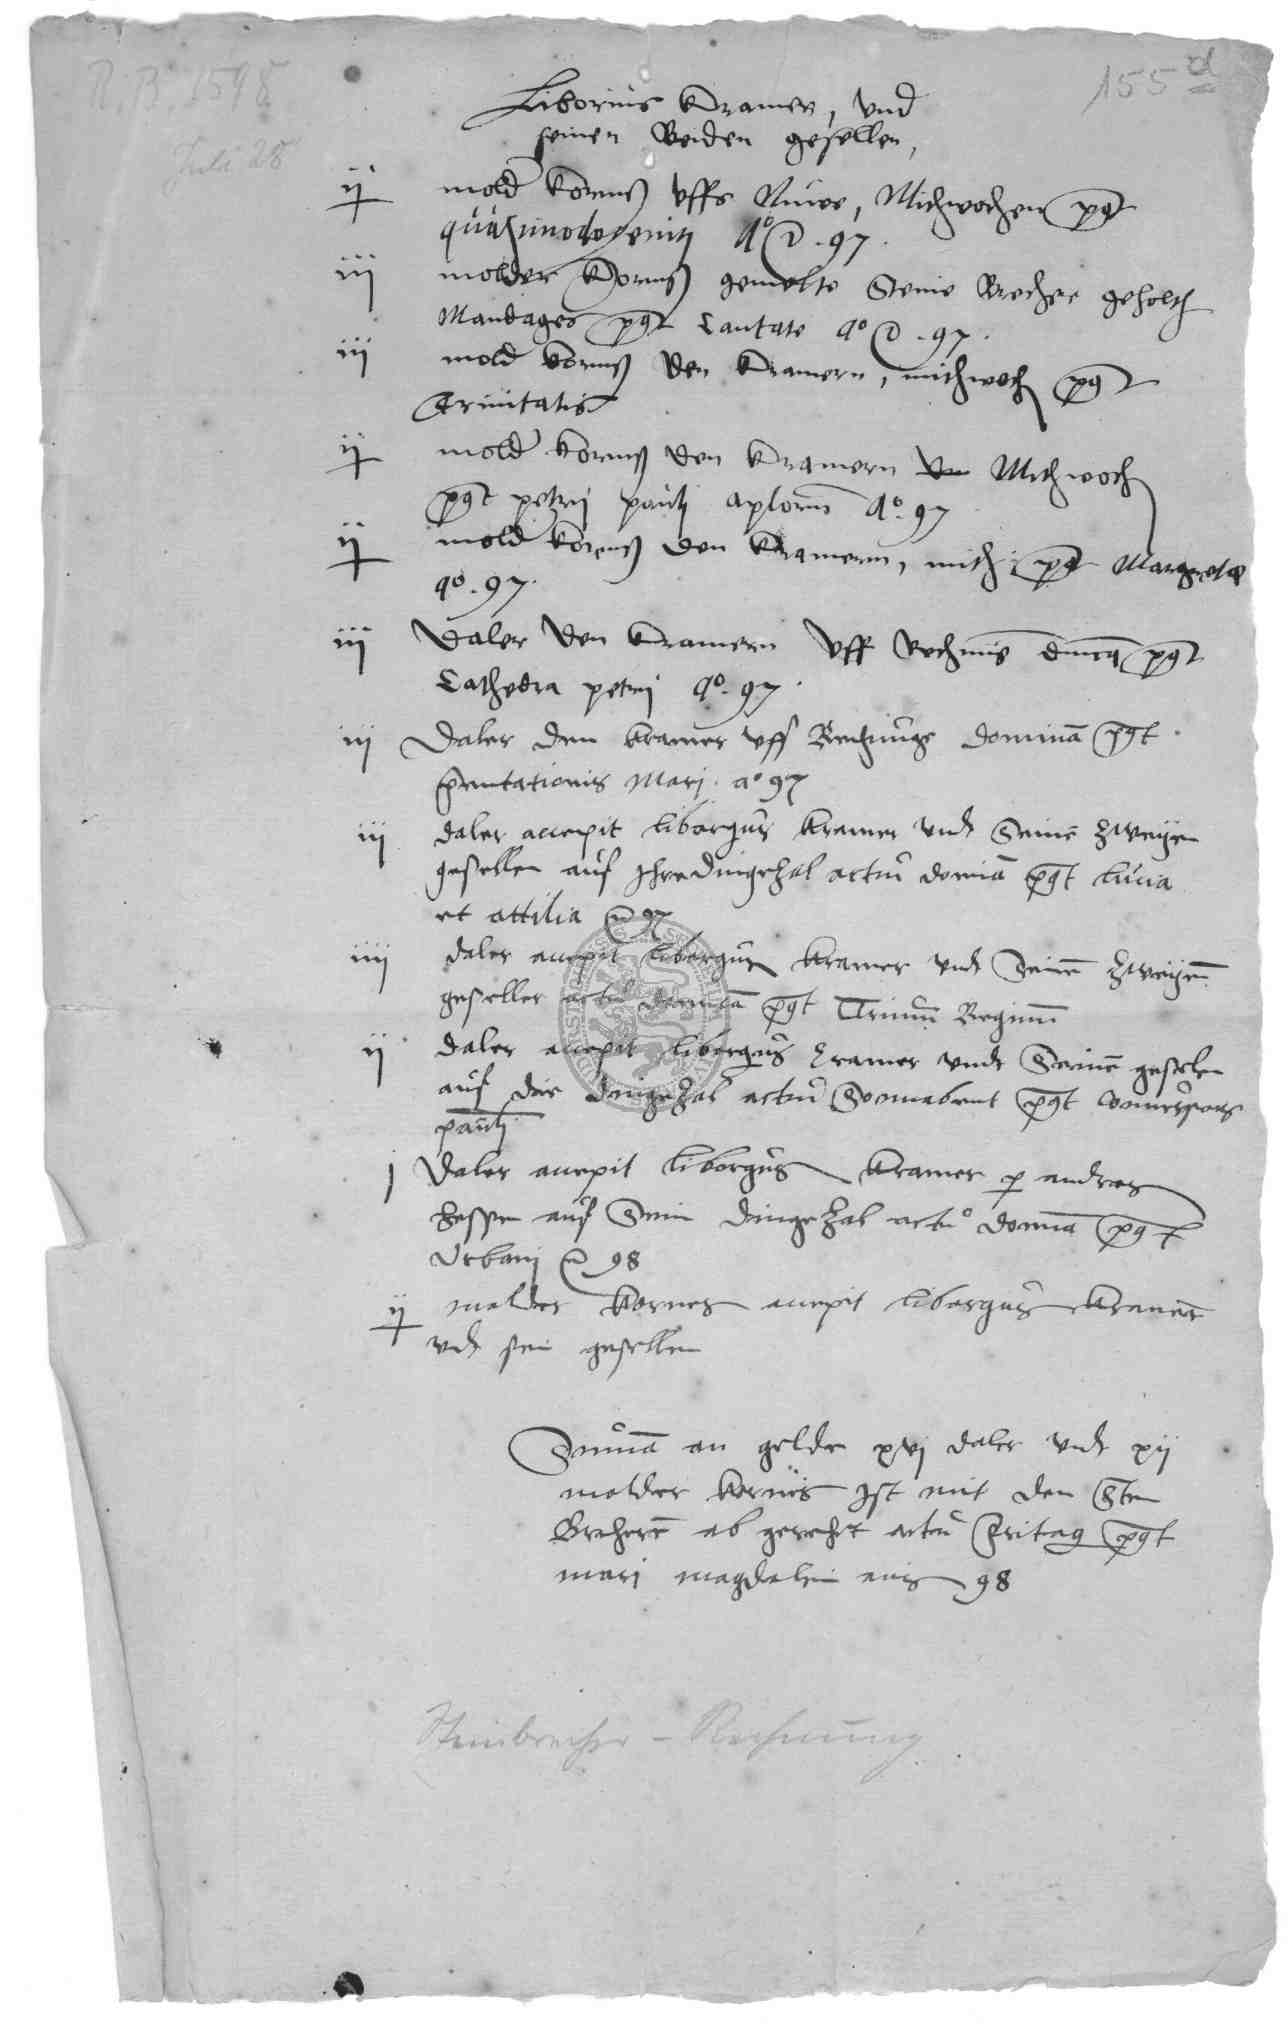 R. B. 1598
155 d
Juli 28
Liborius Kramer, vnd
seinen Beiden gesellen,
ij mold kornß vffs Nuwe, Mithwochen pqt
quasimodogeniti Ao D. 97.
iij molder Kornß gemelte Steine Brecher geholth
Mandages pqt Cantate ao D. 97.
iij mold kornß den Kramern, mithwoch pqt
Trinitatis
ij mold kornß den Kramern Mithwoch
pqt petri pauli aplorum Ao. 97
ij mold kornß den Kramern, mith pqt Margrete
ao. 97.
iij Daler den Kramern vff Rechnũg dmca pqt
Cathedra petri ao. 97.
iij Daler den kramer vff Rechnunge dominca pqt
prentationis Mari. ao 97
iij daler accepit liborgus kramer vnd Seine zweyen
gesellen auf Ihre dingezal actum domca pqt lucia
et attilia 97
iiij daler accepit liborgus kramer vnd Seine zweyen
gesellen actum domca pqt Trium Regum
ij daler accepit liborgus kramer vnde Seine geselen
auf die dingezal actum Sonnabent pqt
pauli
j Daler accepit liborgus kramer p andres
hessen auf Sein dingezal actum domca pqt
Urbani 98
ij molder kornes accepit liborgus kramer
vnd sein gesellen
Summa an gelde xvj daler vnd xij
molder kornes Ist mit den Sten
Brechere ab gerecht actum Fritag pqt
mari magdaleni 98
Steinbrecher - Rechnung